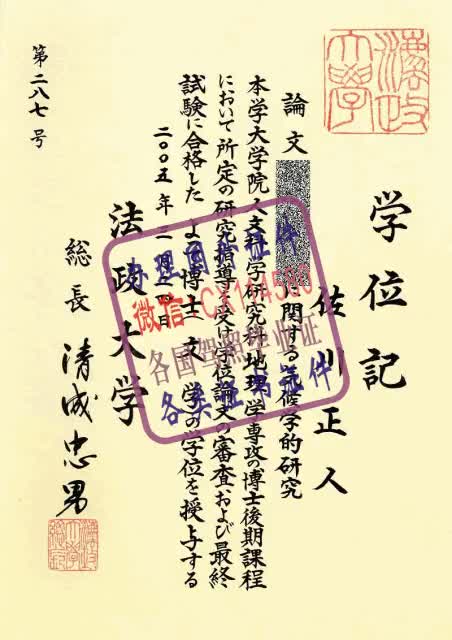 学位記
佐川正人
論文
に関する
学的研究
本学大学院人文科学研究科地理学専攻の博士後期課程
において所定の研究指導を受け学位論文の審査および最終
試験に合格した
よ
博士
文
学の学位を授与する
二〇〇五年三月二四日
法政大学
総長
清成忠男
第二八七号
法政大学
办理国
证件
微信:
各国驾照毕业证
各类证写证件